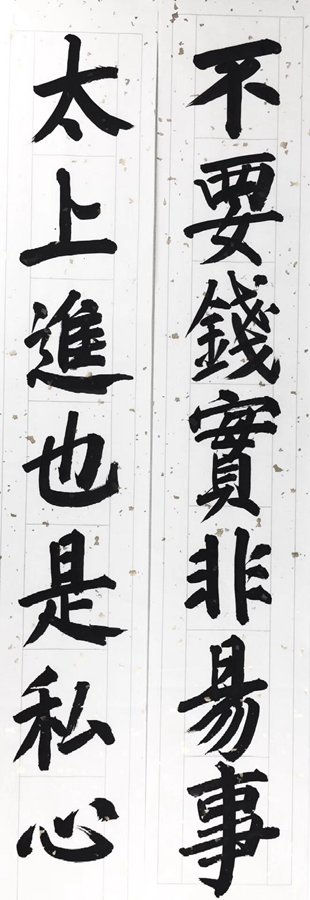 不要錢實非易事
太上進也是私心